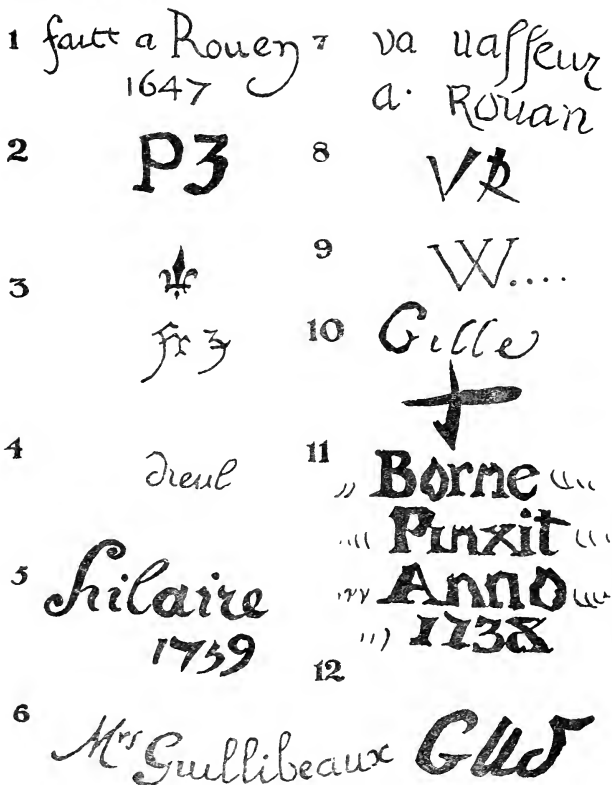 1 faitt a Rouen
1647
2 P3
3
fr 3
4 dieul
5 hilaire
1759
6 Mrs Guillibeaux
7 va uasseur
a· Rouan
8 VR
9 W....
10 Gille
11 Borne
Pinxit
Anno
1738
12 GUd